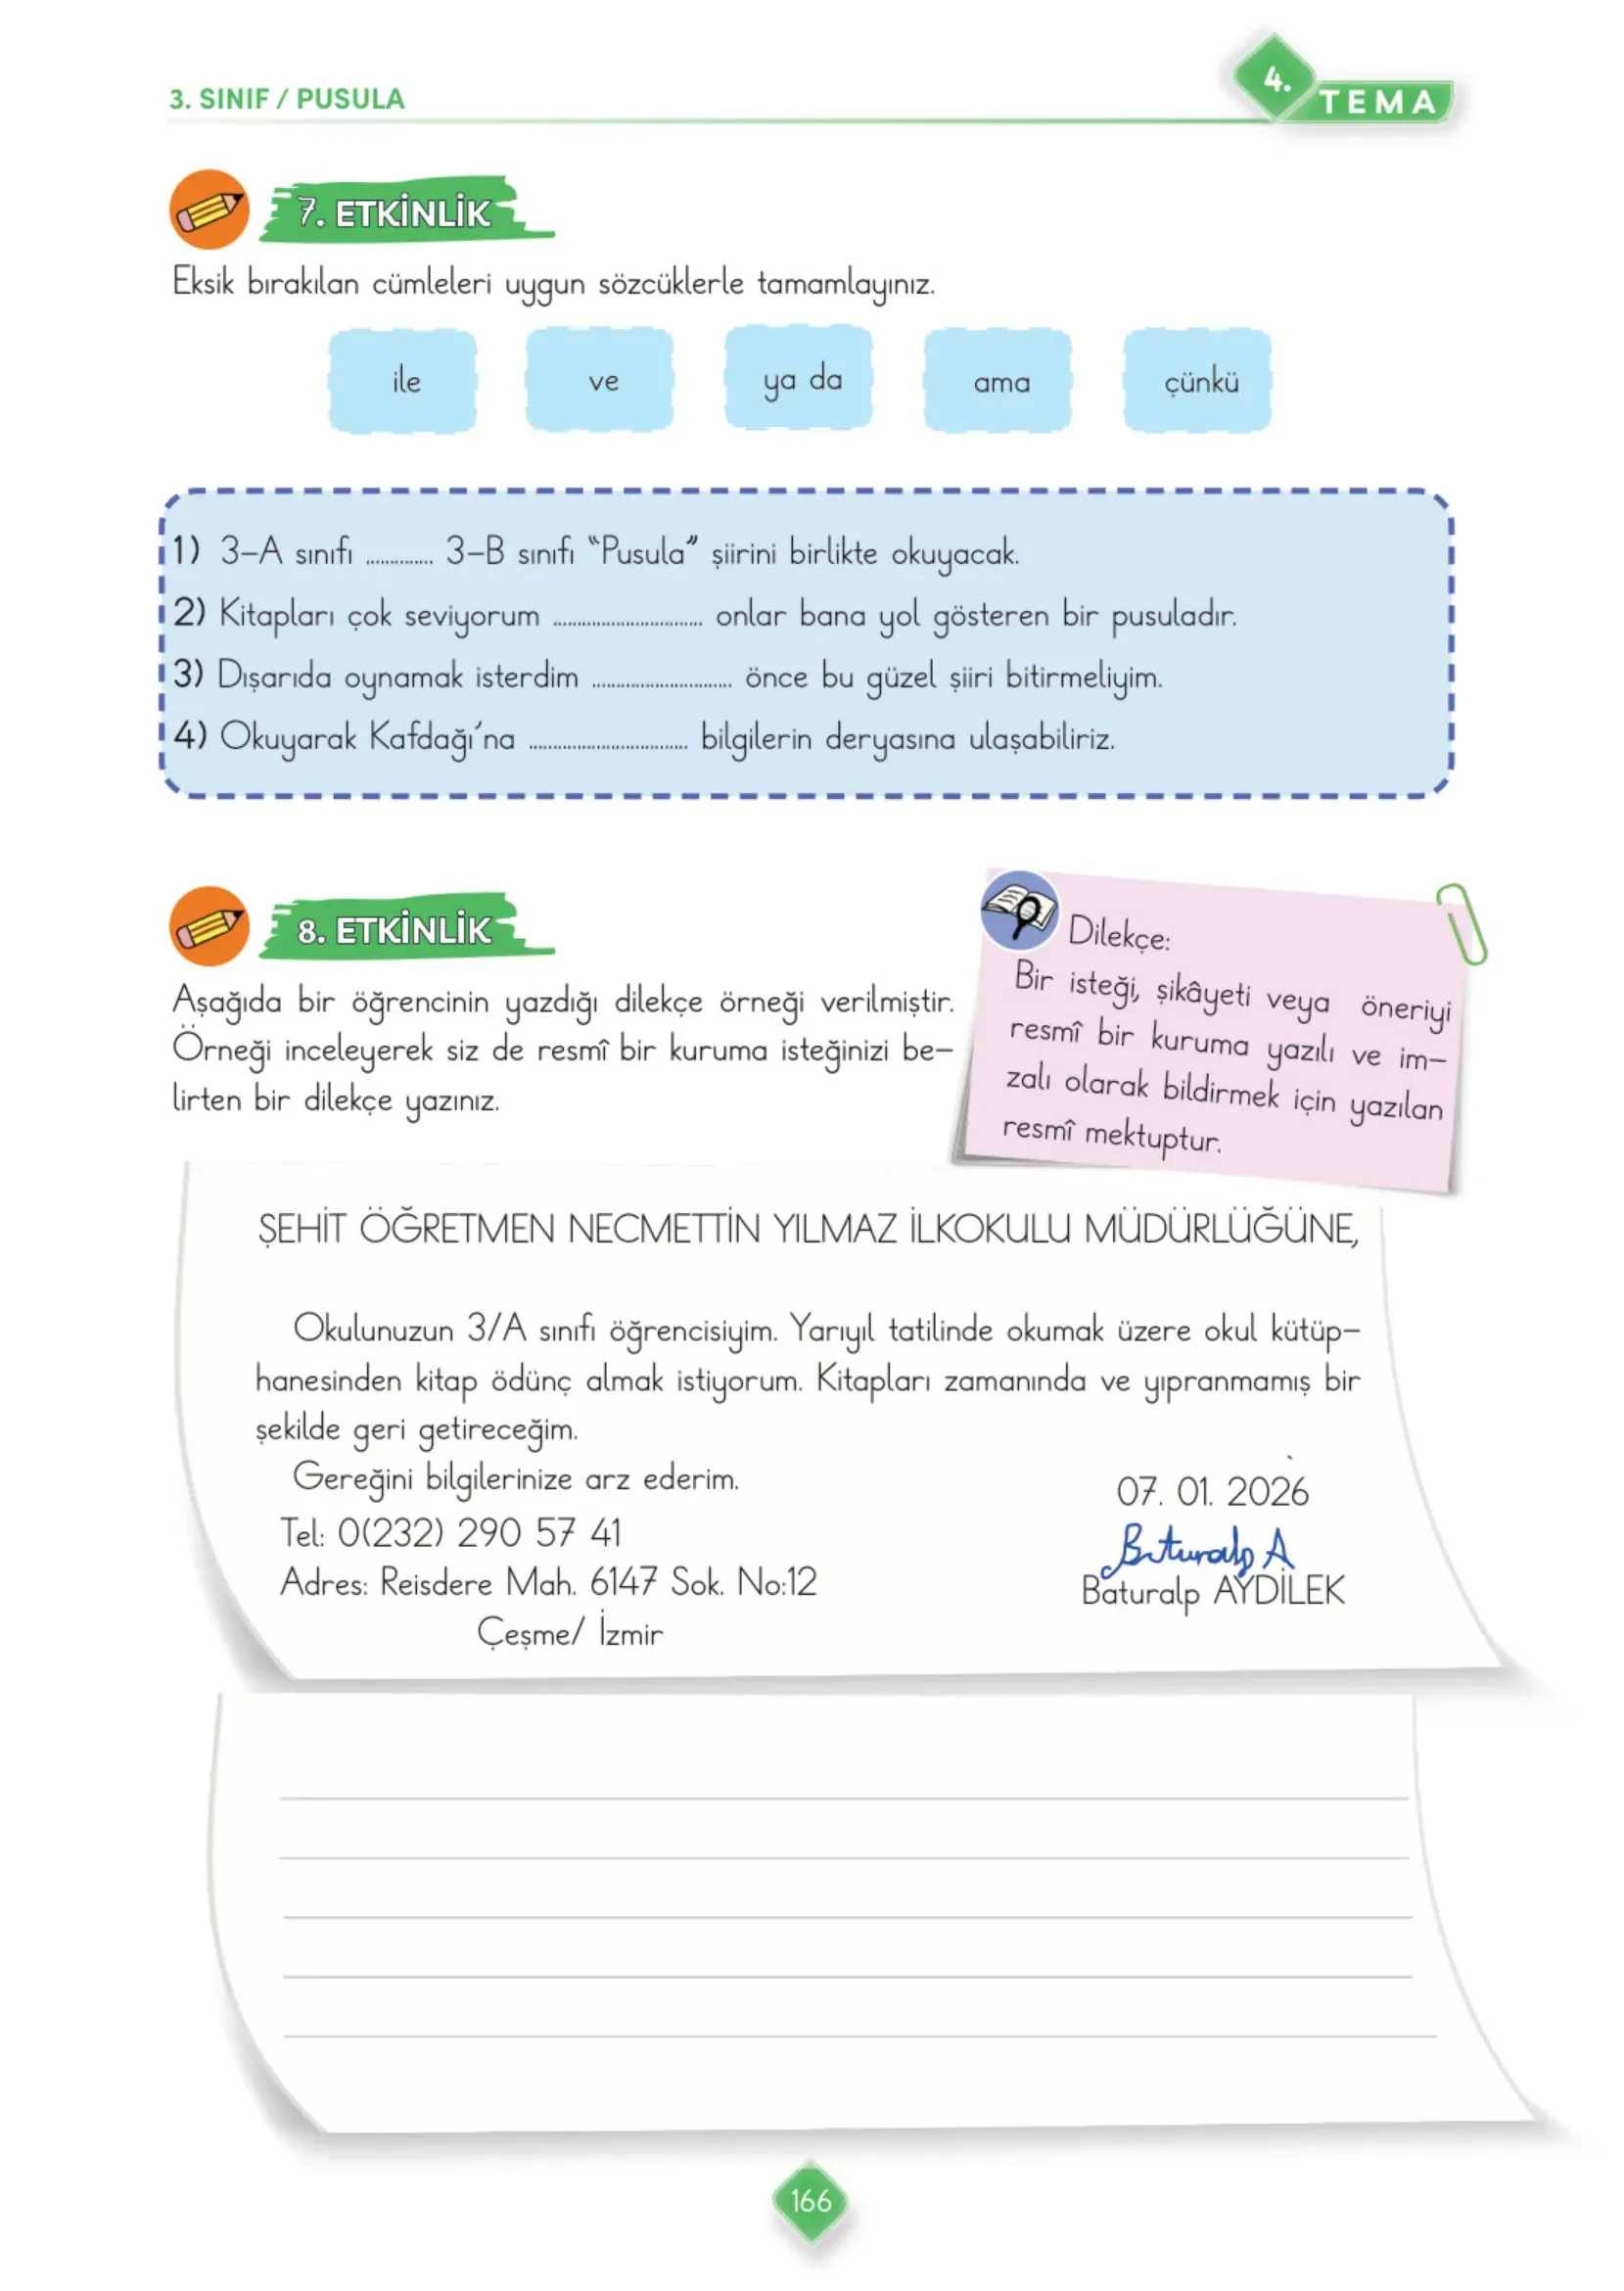 3. SINIF / PUSULA
4.
TEMA
7. ETKİNLİK
Eksik bırakılan cümleleri uygun sözcüklerle tamamlayınız.
ile
ve
ya da
ama
çünkü
1) 3-A sınıfı .............. 3-B sınıfı “Pusula” şiirini birlikte okuyacak.
2) Kitapları çok seviyorum ............................... onlar bana yol gösteren bir pusuladır.
3) Dışarıda oynamak isterdim ............................. önce bu güzel şiiri bitirmeliyim.
4) Okuyarak Kafdağı’na ................................. bilgilerin deryasına ulaşabiliriz.
8. ETKİNLİK
Aşağıda bir öğrencinin yazdığı dilekçe örneği verilmiştir.
Örneği inceleyerek siz de resmî bir kuruma isteğinizi be-
lirten bir dilekçe yazınız.
Dilekçe:
Bir isteği, şikâyeti veya öneriyi
resmî bir kuruma yazılı ve im-
zalı olarak bildirmek için yazılan
resmî mektuptur.
ŞEHİT ÖĞRETMEN NECMETTİN YILMAZ İLKOKULU MÜDÜRLÜĞÜNE,
Okulunuzun 3/A sınıfı öğrencisiyim. Yarıyıl tatilinde okumak üzere okul kütüp-
hanesinden kitap ödünç almak istiyorum. Kitapları zamanında ve yıpranmamış bir
şekilde geri getireceğim.
Gereğini bilgilerinize arz ederim.
07. 01. 2026
Tel: 0(232) 290 57 41
Baturalp A
Adres: Reisdere Mah. 6147 Sok. No:12
Baturalp AYDİLEK
Çeşme/ İzmir
166